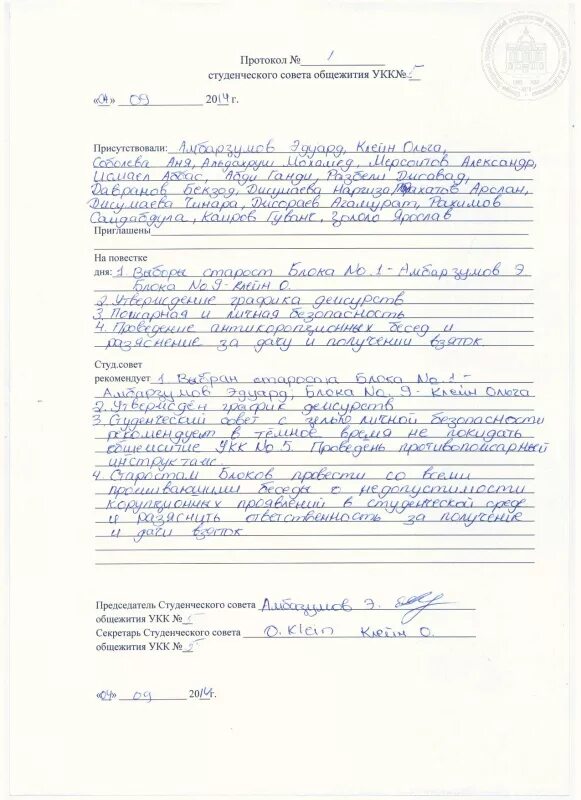 Протокол № 1
студенческого совета общежития УКК№ 5
«04» 09 2014 г.
Присутствовали: Амбарзумов Эдуард, Клейн Ольга,
Соболева Аня, Альдахруш Мохамед, Мерсоипов Александр,
Исмаел Аббас, Абди Ганди, Разбели Дисовад,
Давранов Бекзод, Дисумаева Наргиза, Рахатов Арслан,
Дисумаева Чинара, Дисораев Агамурат, Рахимов
Саидабдула, Каиров Гуванч, Зололо Ярослав
Приглашены
На повестке
дня: 1. Выборы старост Блока No. 1 - Амбарзумов Э.
Блока No 9 - Клейн О.
2. Утверисдение графика деисурств
3. Пожарная и личная безопасность
4. Проведение антикоропционных бесед и
разяснение за дачу и получении взяток.
Студ.совет
рекомендует 1. Выбран староста Блока No. 1 -
Амбарзумов Эдуард, Блока No. 9 - Клейн Ольга
2. Утверисден график деисурств
3. Студенческий совет с целью личной безопасности
рекомендует в тёмное время не покидать
общеиситие УКК No 5. Проведень противопоисарный
инструктаис
4. Старостам Блоков провести со всеми
происивающими беседы о недопустимости
корупционных проявлений в студенческой среде
и разяснить ответственность за получение
и дачи взяток
Председатель Студенческого совета Амбазумов Э.
общежития УКК № 5
Секретарь Студенческого совета O. Klein Клейн О.
общежития УКК № 5
«04» 09 2014г.